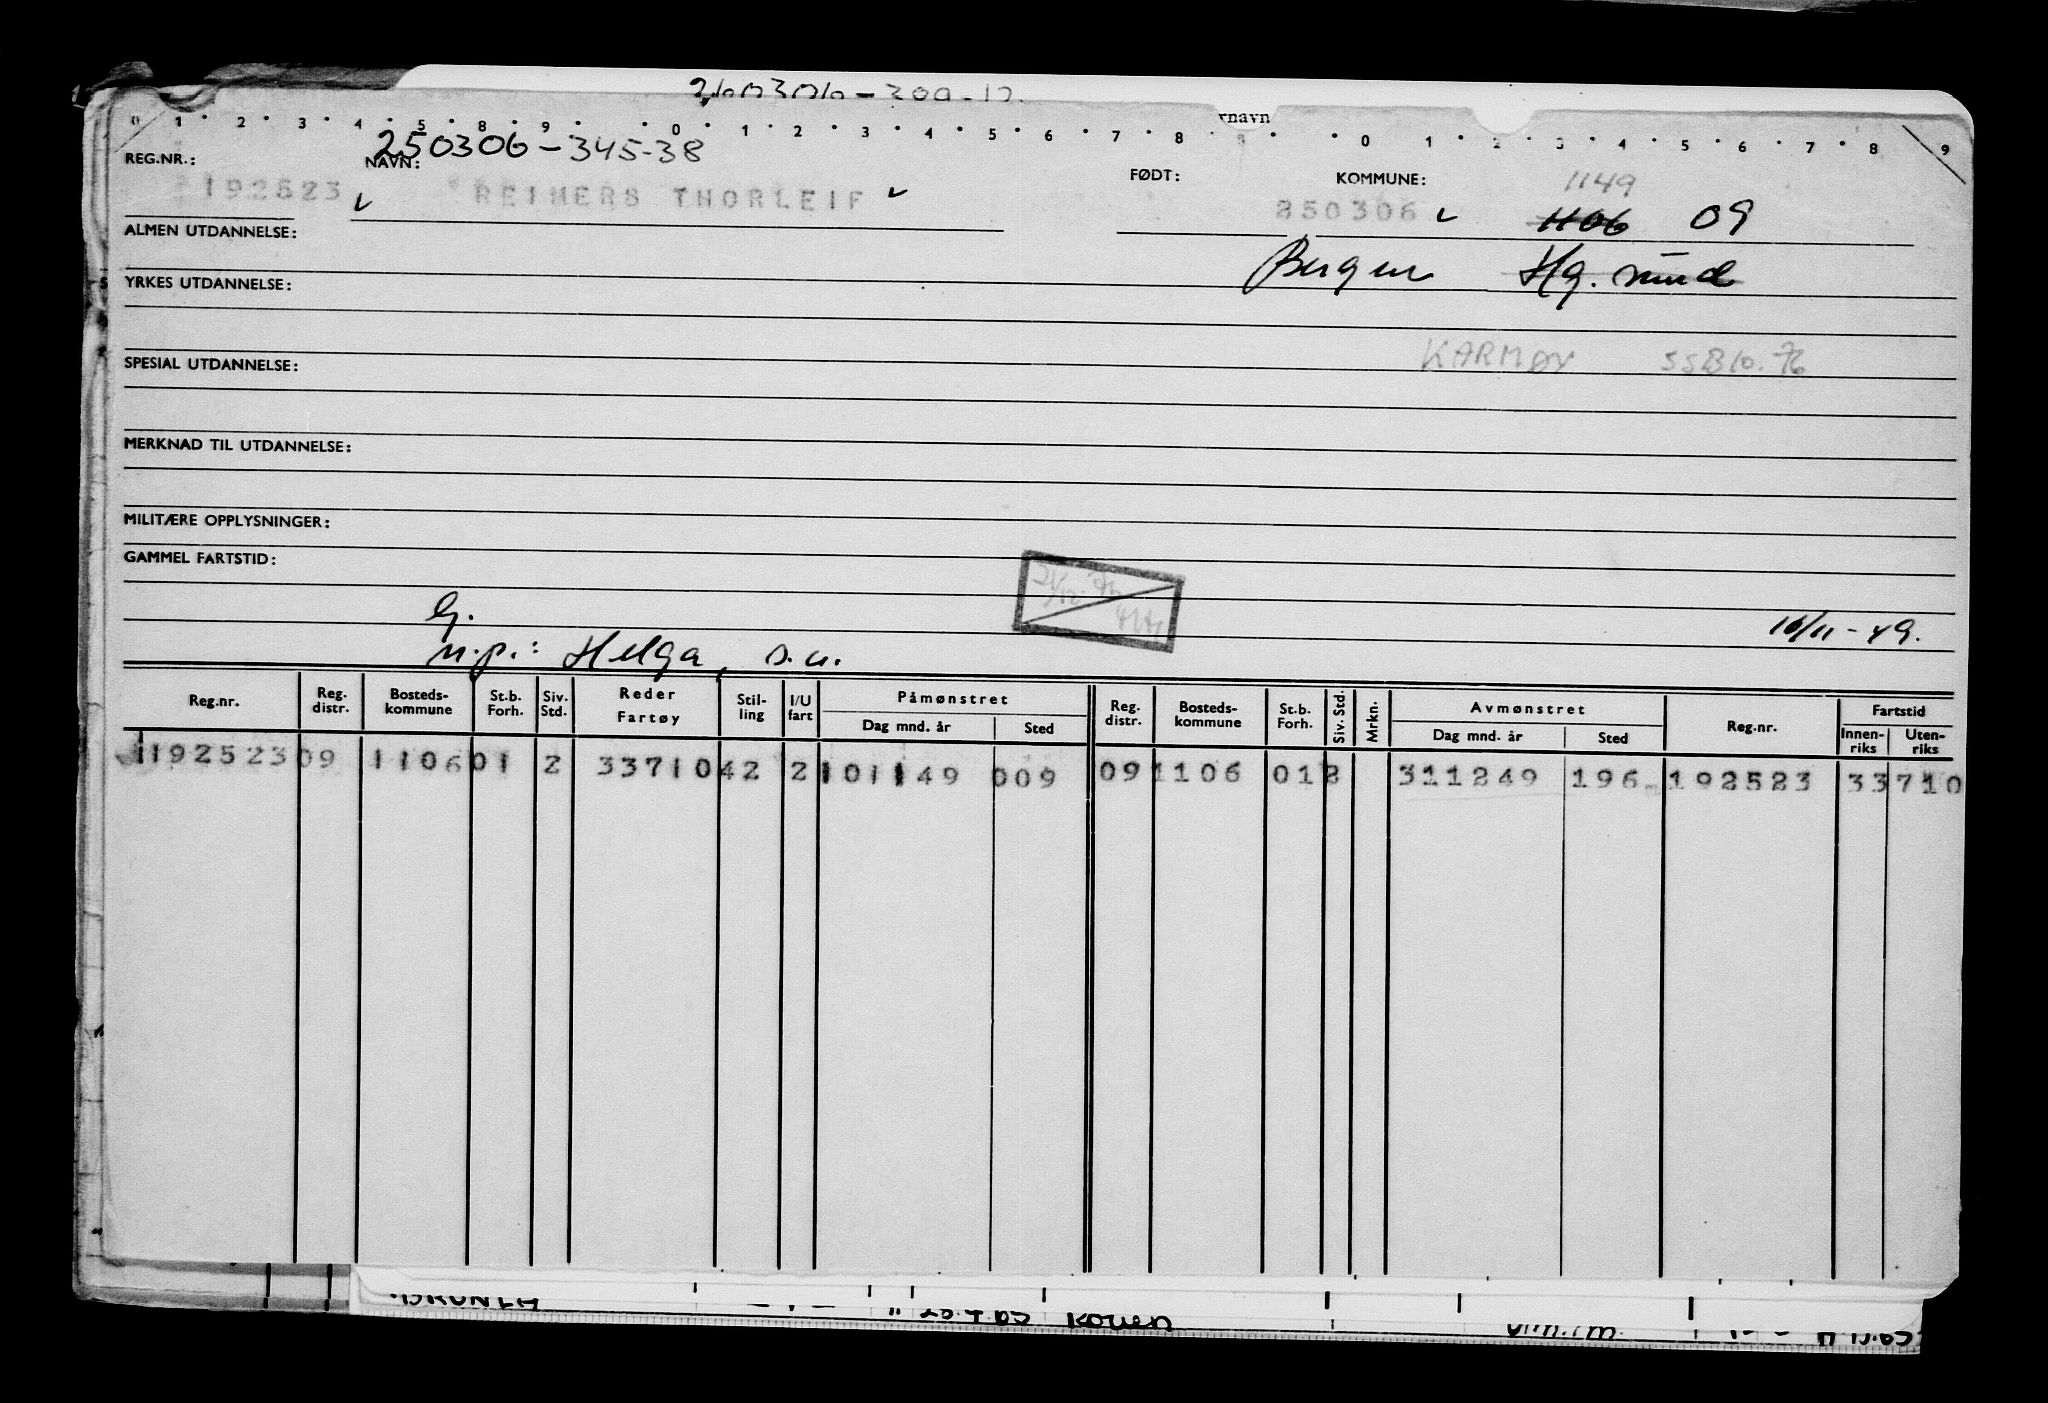 rnavn
0 1 2 3 4 5 8 9 0 1 2 3 4 5 6 7 8 9 0 1 2 3 4 5 6 7 8 9
250306-345-38
REG.NR.: NAVN: FØDT: KOMMUNE: 1149
192523 REIMERS THORLEIF 250306 1106 09
ALMEN UTDANNELSE:
Bergen Hg. sund
YRKES UTDANNELSE:
KARMØY SSB 10.76
SPESIAL UTDANNELSE:
MERKNAD TIL UTDANNELSE:
MILITÆRE OPPLYSNINGER:
GAMMEL FARTSTID:
G.
16/11-49.
n.p.: Helga, s.u.
Reg.nr. Reg. distr. Bosteds-kommune St.b. Forh. Siv. Std. Reder Fartøy Stil-ling I/U fart Påmønstret Dag mnd. år Sted Reg. distr. Bosteds-kommune St.b. Forh. Siv. Std. Mrkn. Avmønstret Dag mnd. år Sted Reg.nr. Fartstid Innen-riks Uten-riks
1192523 09 1106 01 2 33710 42 2 101149 009 09 1106 01 2 311249 196 192523 33710